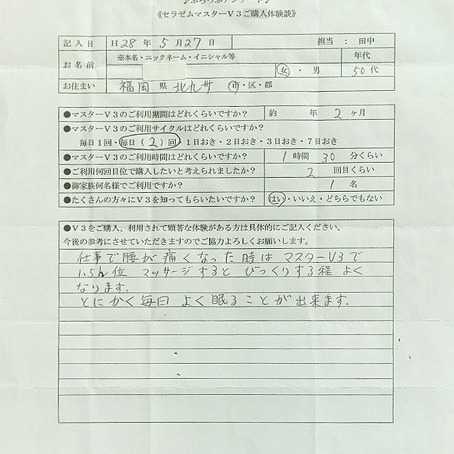 《セラゼムマスターV3ご購入体験談》
記入日 H28年5月27日 担当：田中
お名前 ※本名・ニックネーム・イニシャル等 年代
女・男 50代
お住まい 福岡 県 北九州 市・区・郡
●マスターV3のご利用期間はどれくらいですか？ 約 年 2ヶ月
●マスターV3のご利用サイクルはどれくらいですか？
毎日1回・毎日(2)回・1日おき・2日おき・3日おき・7日おき
●マスターV3のご利用時間はどれくらいですか？ 1時間30分くらい
●ご利用何回目位で購入したいと考えられましたか？ 2回目くらい
●御家族何名様でご利用ですか？ 1名
●たくさんの方々にV3を知ってもらいたいですか？ はい・いいえ・どちらでもない
●V3をご購入、利用されて顕著な体験がある方は具体的にご記入ください。
今後の参考にさせていただきますのでご協力よろしくお願いします。
仕事で腰が痛くなった時はマスターV3で
1.5h位 マッサージするとびっくりする程よく
なります。
とにかく毎日よく眠ることが出来ます。